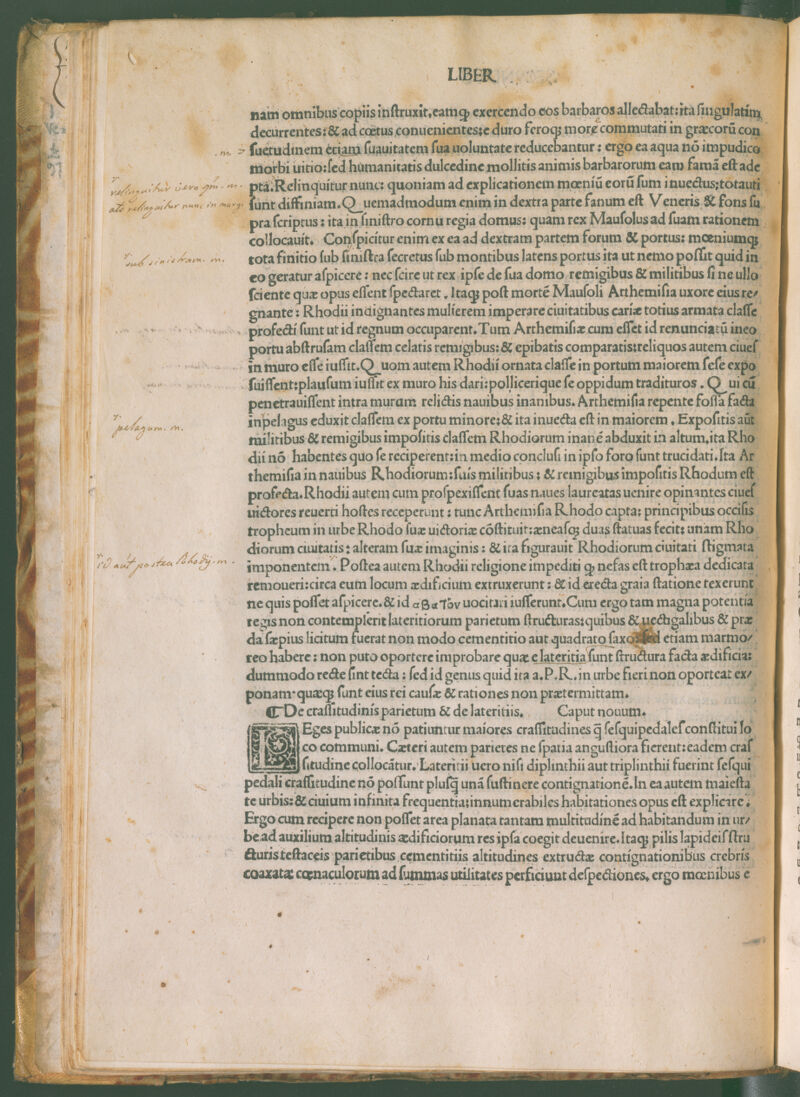 LIBER
nam omnibus copiis inſtruxit,eamq; exercendo eos barbaros allectabat:ita ſingulatim
decurrentes:& ad cœtus conuenientes:e duro feroq; more commutati in græcorū con
ſuetudinem etiam ſuauitatem ſua uoluntate reducebantur : ergo ea aqua nō impudico
morbi uitio:ſed humanitatis dulcedine mollitis animis barbarorum eam famā eſt ade
pta.Relinquitur nunc: quoniam ad explicationem mœniū eorū ſum inuectus:totauti
ſunt diffiniam.Quemadmodum enim in dextra parte fanum eſt Veneris & fons ſu
pra ſcriptus : ita in ſiniſtro cornu regia domus: quam rex Mauſolus ad ſuam rationem
collocauit. Conſpicitur enim ex ea ad dextram partem forum & portus: mœniumq;
tota finitio ſub ſiniſtra ſecretus ſub montibus latens portus ita ut nemo poſſit quid in
eo geratur aſpicere : nec ſcire ut rex ipſe de ſua domo remigibus & militibus ſi ne ullo
ſciente quæ opus eſſent ſpectaret . Itaq; poſt mortē Mauſoli Arthemiſia uxore eius re/
gnante : Rhodii indignantes mulierem imperare ciuitatibus cariæ totius armata claſſe
profecti ſunt ut id regnum occuparent.Tum Arthemiſiæ cum eſſet id renunciatū in eo
portu abſtruſam claſſem celatis remigibus:& epibatis comparatis:reliquos autem ciueſ
in muro eſſe iuſſit.Quom autem Rhodii ornata claſſe in portum maiorem ſeſe expo
ſuiſſent:plauſum iuſſit ex muro his dari:pollicerique ſe oppidum tradituros . Qui cū
penetrauiſſent intra muram relictis nauibus inanibus. Arthemiſia repente foſſa facta
in pelagus eduxit claſſem ex portu minore:& ita inuecta eſt in maiorem . Expoſitis aūt
militibus & remigibus impoſitis claſſem Rhodiorum inanē abduxit in altum,ita Rho
dii nō habentes quo ſe reciperent:in medio concluſi in ipſo foro ſunt trucidati.Ita Ar
themiſia in nauibus Rhodiorum:ſuis militibus : & remigibus impoſitis Rhodum eſt
profecta.Rhodii autem cum proſpexiſſent ſuas naues laureatas uenire opinantes ciueſ
uictores reuerti hoſtes receperunt : tunc Arthemiſia Rhodo capta: principibus occiſis
tropheum in urbe Rhodo ſuæ uictoriæ cōſtituit:æneaſq; duas ſtatuas fecit: unam Rho
diorum ciuitatis : alteram ſuæ imaginis : & ita figurauit Rhodiorum ciuitati ſtigmata
imponentem . Poſtea autem Rhodii religione impediti q; nefas eſt trophæa dedicata
remoueri:circa eum locum ædificium extruxerunt : & id erecta graia ſtatione texerunt
ne quis poſſet aſpicere.& id αβατὸν uocitari iuſſerunt.Cum ergo tam magna potentia
regis non contempſerit lateritiorum parietum ſtructuras:quibus & uectigalibus & præ
da ſæpius licitum fuerat non modo cementitio aut quadrato ſaxo: ſed etiam marmo/
reo habere : non puto oportere improbare quæ e lateritia ſunt ſtructura facta ædificia:
dummodo recte ſint tecta : ſed id genus quid ita a.P.R.in urbe fieri non oporteat ex/
ponam·quæq; ſunt eius rei cauſæ & rationes non prætermittam.
De craſſitudinis parietum & de lateritiis. Caput nonum.
LEges publicæ nō patiuntur maiores craſſitudines q̄ ſeſquipedaleſ conſtitui lo
co communi. Cæteri autem parietes ne ſpatia anguſtiora fierent:eadem craſ
ſitudine collocātur. Lateritii uero niſi diplinthii aut triplinthii fuerint ſeſqui
pedali craſſitudine nō poſſunt pluſq̄ unā ſuſtinere contignationē.In ea autem maieſta
te urbis:& ciuium infinita frequentia:innumerabiles habitationes opus eſt explicare .
Ergo cum recipere non poſſet area planata tantam multitudinē ad habitandum in ur/
be.ad auxilium altitudinis ædificiorum res ipſa coegit deuenire.Itaq; pilis lapideiſ ſtru
cturis teſtaceis parietibus cementitiis altitudines extructæ contignationibus crebris
coaxatæ cœnaculorum ad ſummas utilitates perficiunt deſpectiones. ergo mœnibus e
relinquitur vero qm. m.
ate relinquitur nunc in marg.
sub sinistram. m.
pelagum. m.
id aut postea Rhodij. m.